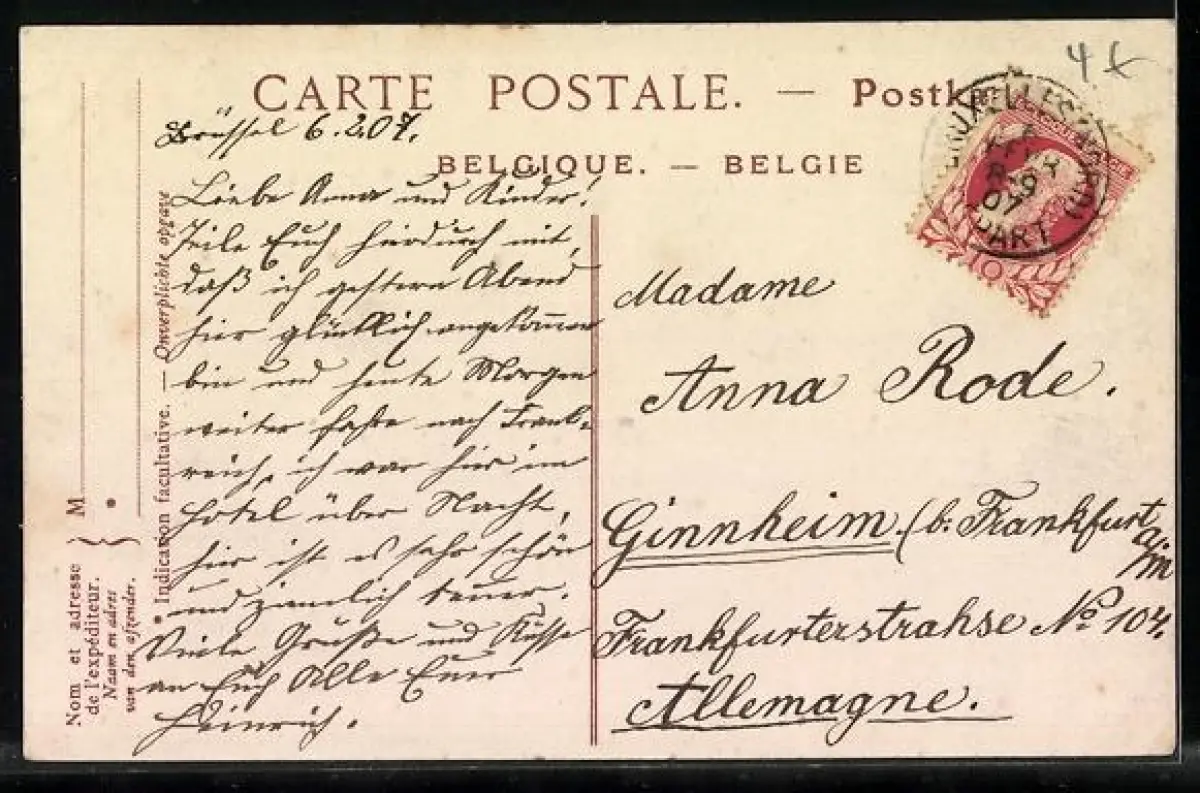 4 x
CARTE POSTALE. — Postk
BELGIQUE. — BELGIE
BRUXELLES (MIDI)
8-9
07
DEPART
10
Brüssel 6.2.07.
Liebe Anna und Kinder!
Teile Euch hierdurch mit,
daß ich gestern Abend
hier glücklich angekommen
bin und heute Morgen
weiter fahre nach Frank-
reich, ich war hier im
Hotel über Nacht,
hier ist es sehr schön
und ziemlich teuer.
Viele Grüße und Küsse
an Euch Alle Euer
Heinrich.
Madame
Anna Rode.
Ginnheim (b. Frankfurt
a/m
Frankfurterstrahse No 104.
Allemagne.
Nom et adresse
de l'expéditeur.
Naam en adres
van den afzender.
M
• Indication facultative. — Onverplichte opgave